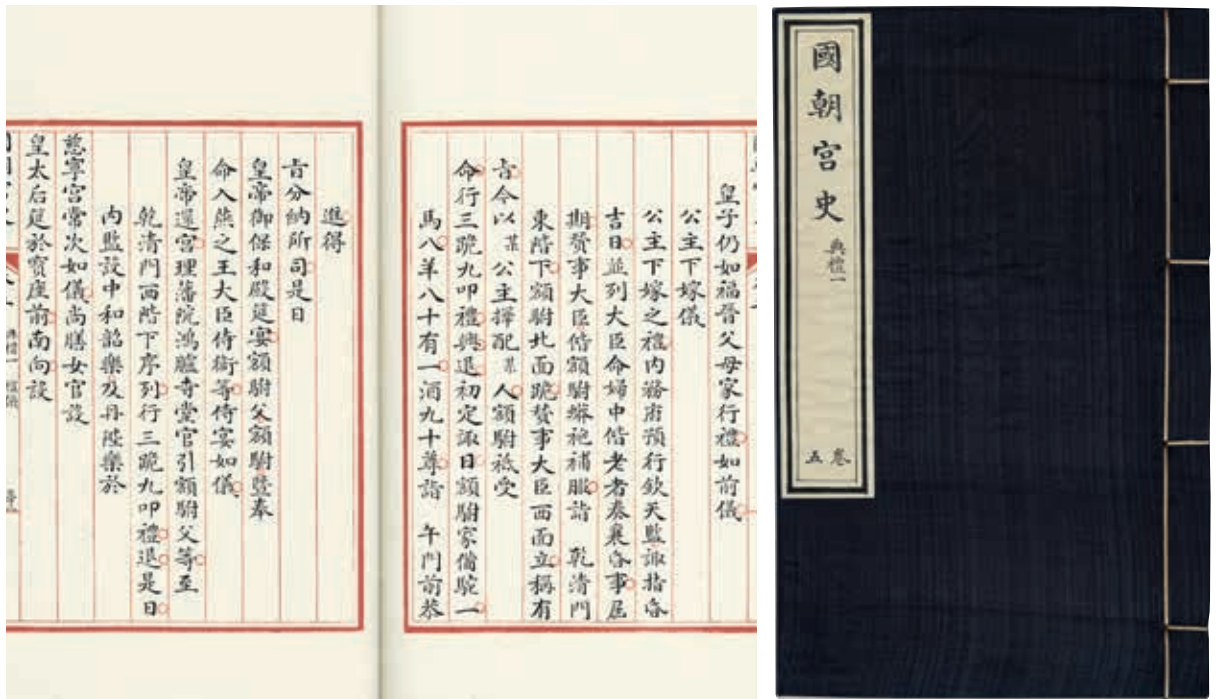 國朝宮史
典禮一
卷五
皇子仍如福晉父母家行禮如前儀
公主下嫁儀
公主下嫁之禮内務府預行欽天監諏指昏
吉日並列大臣命婦中偕老者奏襄昏事屆
期贊事大臣偕額駙蟒袍補服詣 乾清門
東階下額駙北面跪贊事大臣西面立稱有
旨今以某公主擇配某人額駙祗受
命行三跪九叩禮興退初定諏日額駙家備駝一
馬八羊八十有一酒九十尊詣 午門前恭
進得
旨分納所司是日
皇帝御保和殿筵宴額駙父額駙暨奉
命入燕之王大臣侍衛等侍宴如儀
皇帝還宮理藩院鴻臚寺堂官引額駙父等至
乾清門西階下序列行三跪九叩禮退是日
内監設中和韶樂及丹陛樂於
慈寧宮常次如儀尚膳女官設
皇太后筵於寶座前南向設